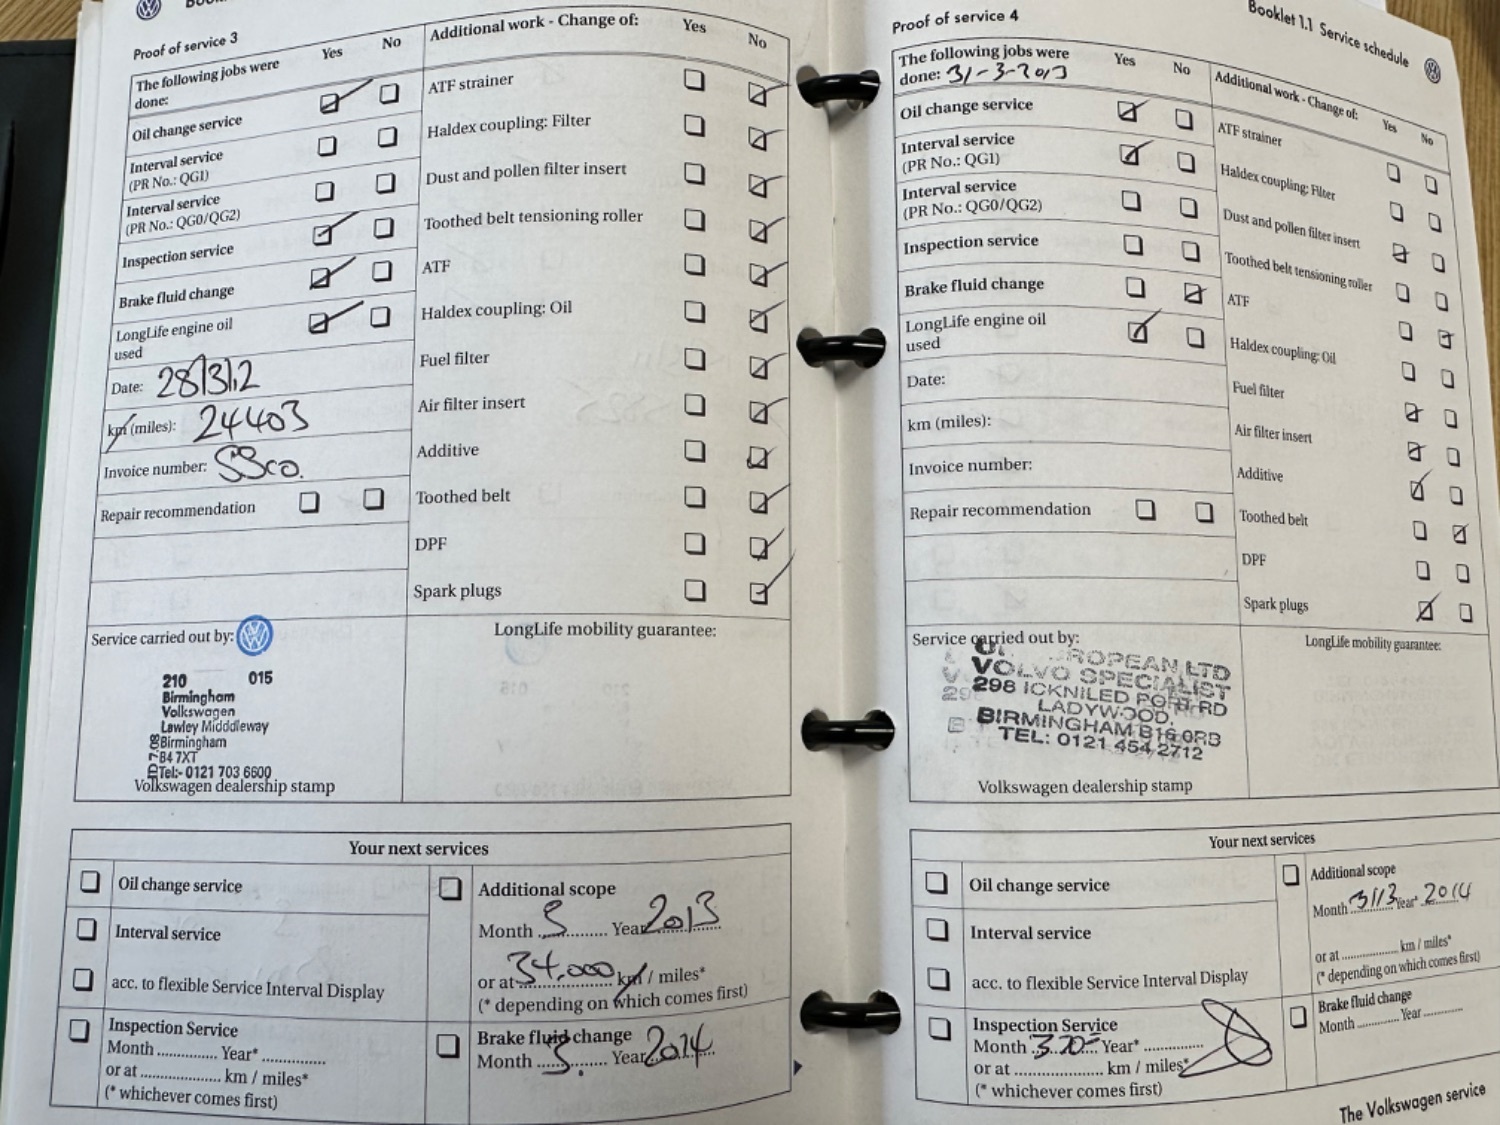 Proof of service 3
The following jobs were done:
Yes No
Oil change service
Interval service
(PR No.: QG1)
Interval service
(PR No.: QG0/QG2)
Inspection service
Brake fluid change
LongLife engine oil
used
Date: 28/3/12
km (miles): 24403
Invoice number:
Repair recommendation
Additional work - Change of:
Yes No
ATF strainer
Haldex coupling: Filter
Dust and pollen filter insert
Toothed belt tensioning roller
ATF
Haldex coupling: Oil
Fuel filter
Air filter insert
Additive
Toothed belt
DPF
Spark plugs
Service carried out by:
210 015
Birmingham
Volkswagen
Lawley Middleway
Birmingham
B4 7XT
Tel:- 0121 703 6600
Volkswagen dealership stamp
LongLife mobility guarantee:
Your next services
Oil change service
Interval service
acc. to flexible Service Interval Display
Inspection Service
Month ............ Year* ............
or at ............ km / miles*
(* whichever comes first)
Additional scope
Month 3 Year 2013
or at 34.000 km / miles*
(* depending on which comes first)
Brake fluid change
Month 3. Year 2014
Booklet 1.1 Service schedule
Proof of service 4
The following jobs were
done: 31-3-2013
Yes No
Oil change service
Interval service
(PR No.: QG1)
Interval service
(PR No.: QG0/QG2)
Inspection service
Brake fluid change
LongLife engine oil
used
Date:
km (miles):
Invoice number:
Repair recommendation
Additional work - Change of:
Yes No
ATF strainer
Haldex coupling: Filter
Dust and pollen filter insert
Toothed belt tensioning roller
ATF
Haldex coupling: Oil
Fuel filter
Air filter insert
Additive
Toothed belt
DPF
Spark plugs
Service carried out by:
EUROPEAN LTD
VOLVO SPECIALIST
298 ICKNILED PORT RD
LADYWOOD.
BIRMINGHAM B16 0RB
TEL: 0121 454 2712
Volkswagen dealership stamp
LongLife mobility guarantee:
Your next services
Oil change service
Interval service
acc. to flexible Service Interval Display
Inspection Service
Month Year* ............
or at ............ km / miles*
(* whichever comes first)
Additional scope
Month 31/3 Year* 2014
or at ............ km / miles*
(* depending on which comes first)
Brake fluid change
Month ............ Year ............
The Volkswagen service